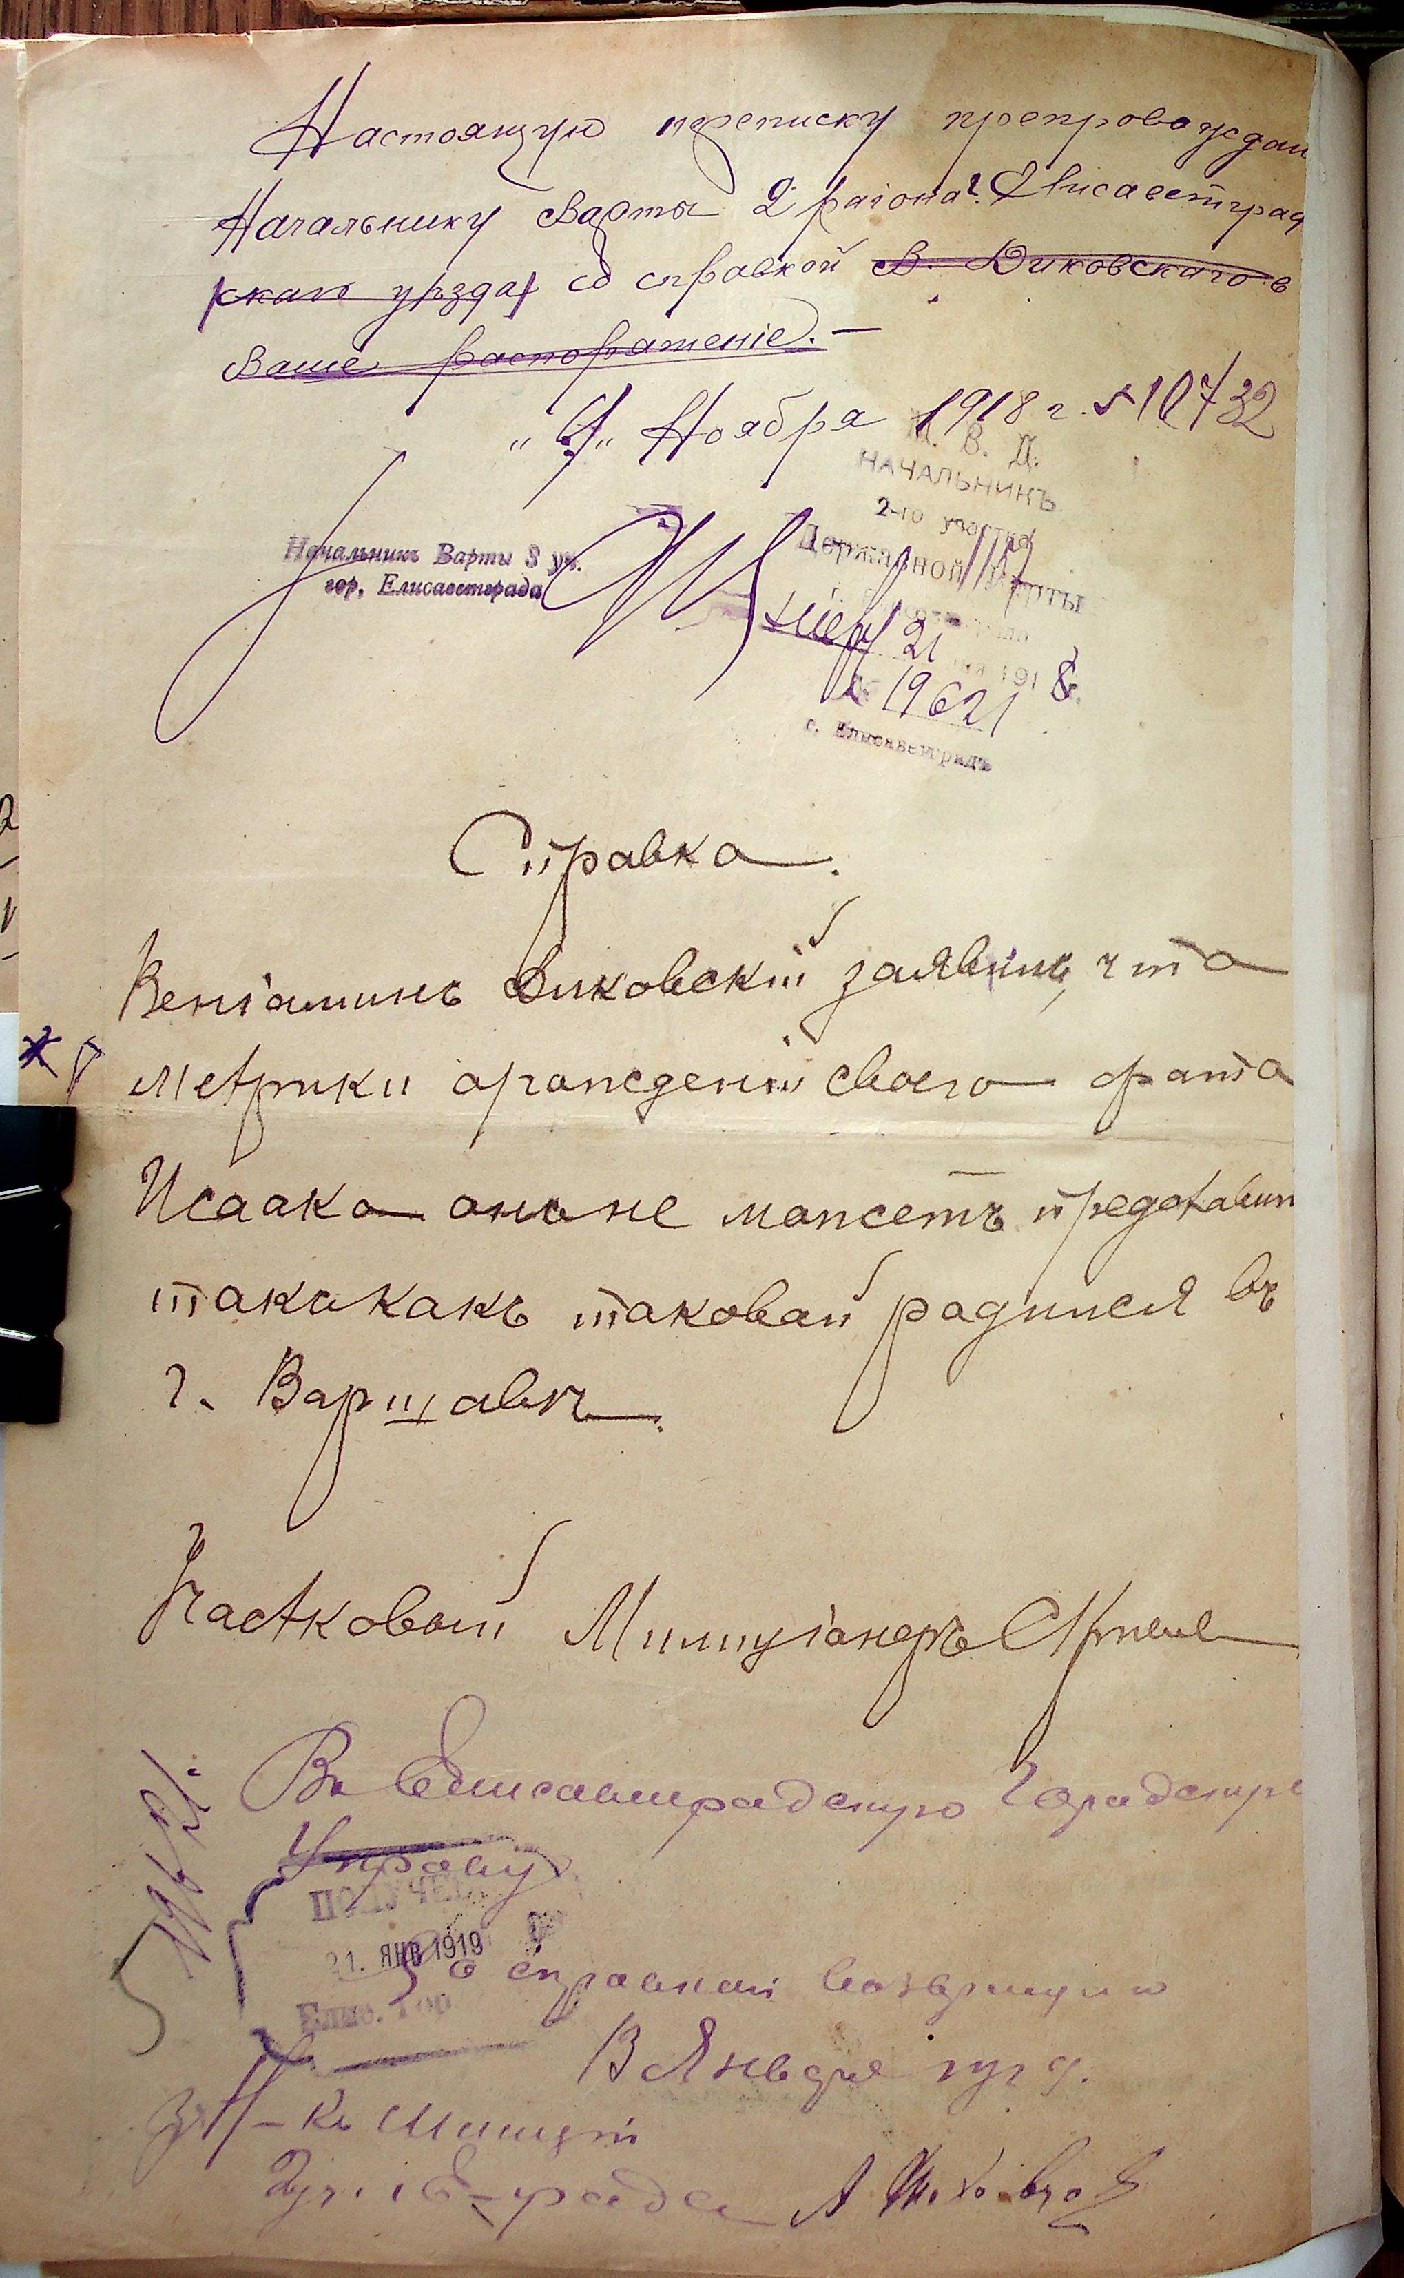 Настоящую переписку препровождаю
Начальнику Варты 2 района г. Елисаветград
скаго уезда со справкой В. Диковскаго в
Ваше распоряжение. —
„9„ Ноября 1918 г. № 10732
М. В. Д.
НАЧАЛЬНИКЪ
2-го участка
Державной Варты
Начальникъ Варты 3 уч.
гор. Елисаветграда
21
1918 г.
№ 19621
г. Елисаветградъ
Справка.
Венiаминъ Диковскiй заявилъ, что
метрики о рожденiи своего брата
Исаака онъ не можетъ представит
такъ какъ таковой родился въ
г. Варшавѣ.
Участковый Милицiонеръ
Въ Елисаветградскую Городскую
Управу
ПОЛУЧЕ
21. ЯНВ 1919
Елис. Гор
со справкой возвращаю
Января 1919 г.
19621.
Н-къ Милицiи
2 уч. Ел-града